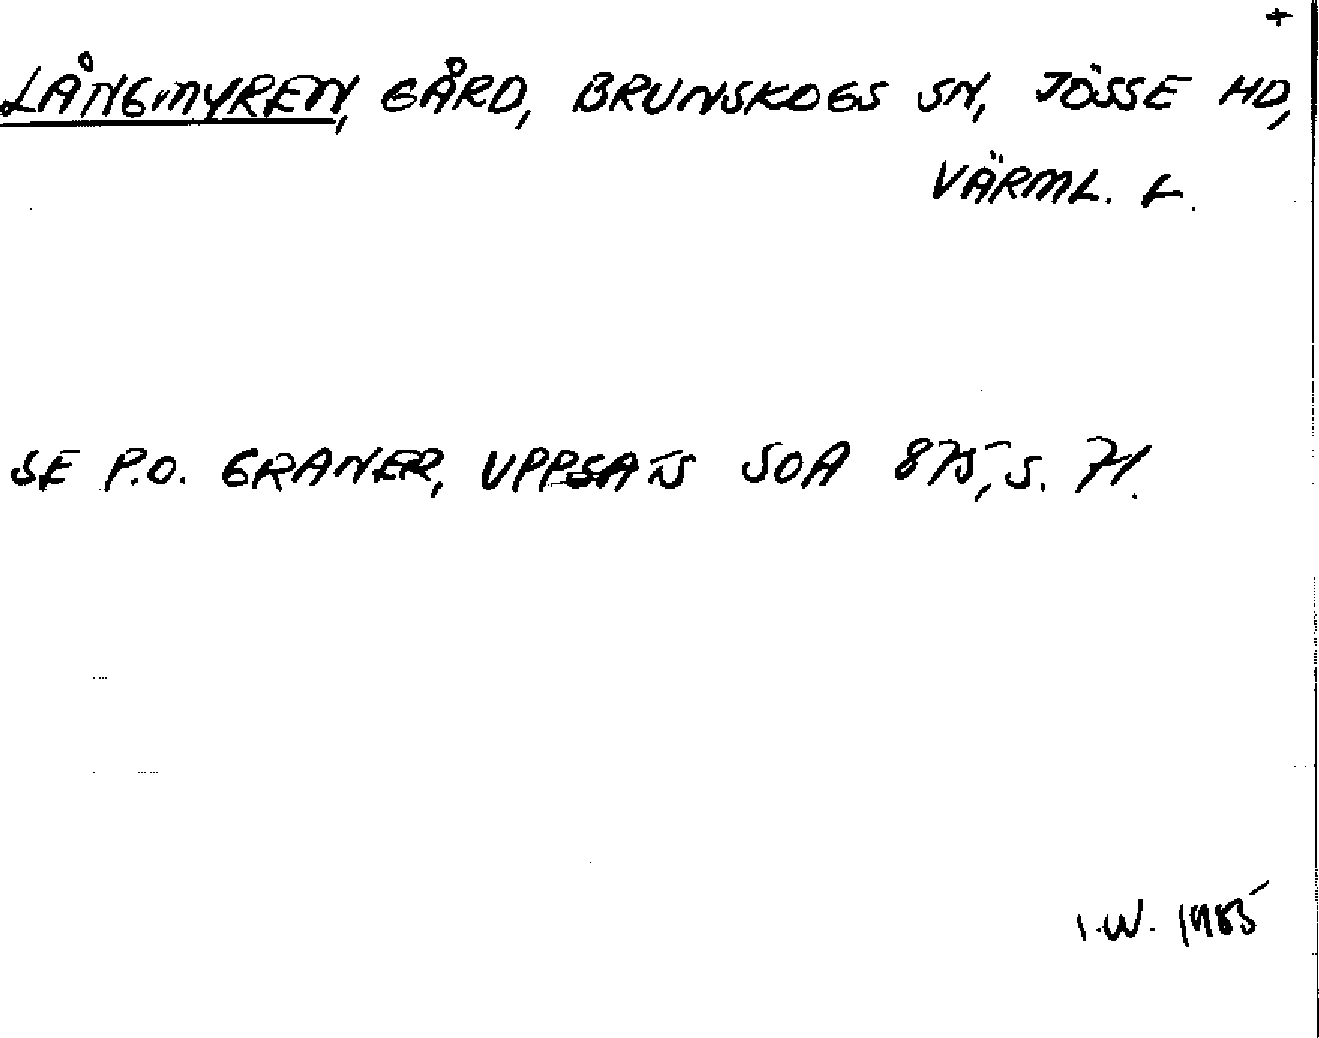 +
LÅNGMYREN, GÅRD, BRUNSKOGS SN, JÖSSE HD,
VÄRML. L.
SE P.O. GRANER, UPPSATS SOA 875, S. 71.
I.W. 1985